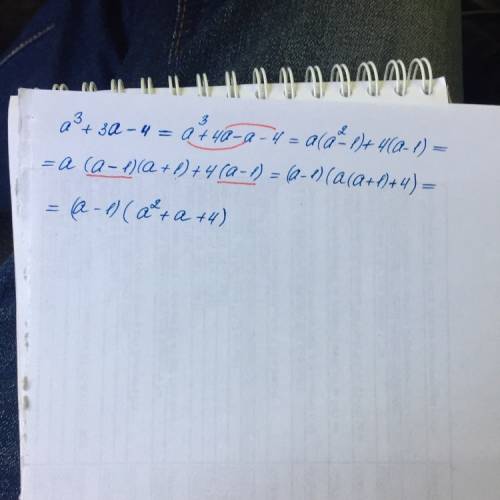 a³ + 3a - 4 = a³ + 4a - a - 4 = a(a² - 1) + 4(a - 1) =
= a (a - 1)(a + 1) + 4(a - 1) = (a - 1)(a(a + 1) + 4) =
= (a - 1)(a² + a + 4)